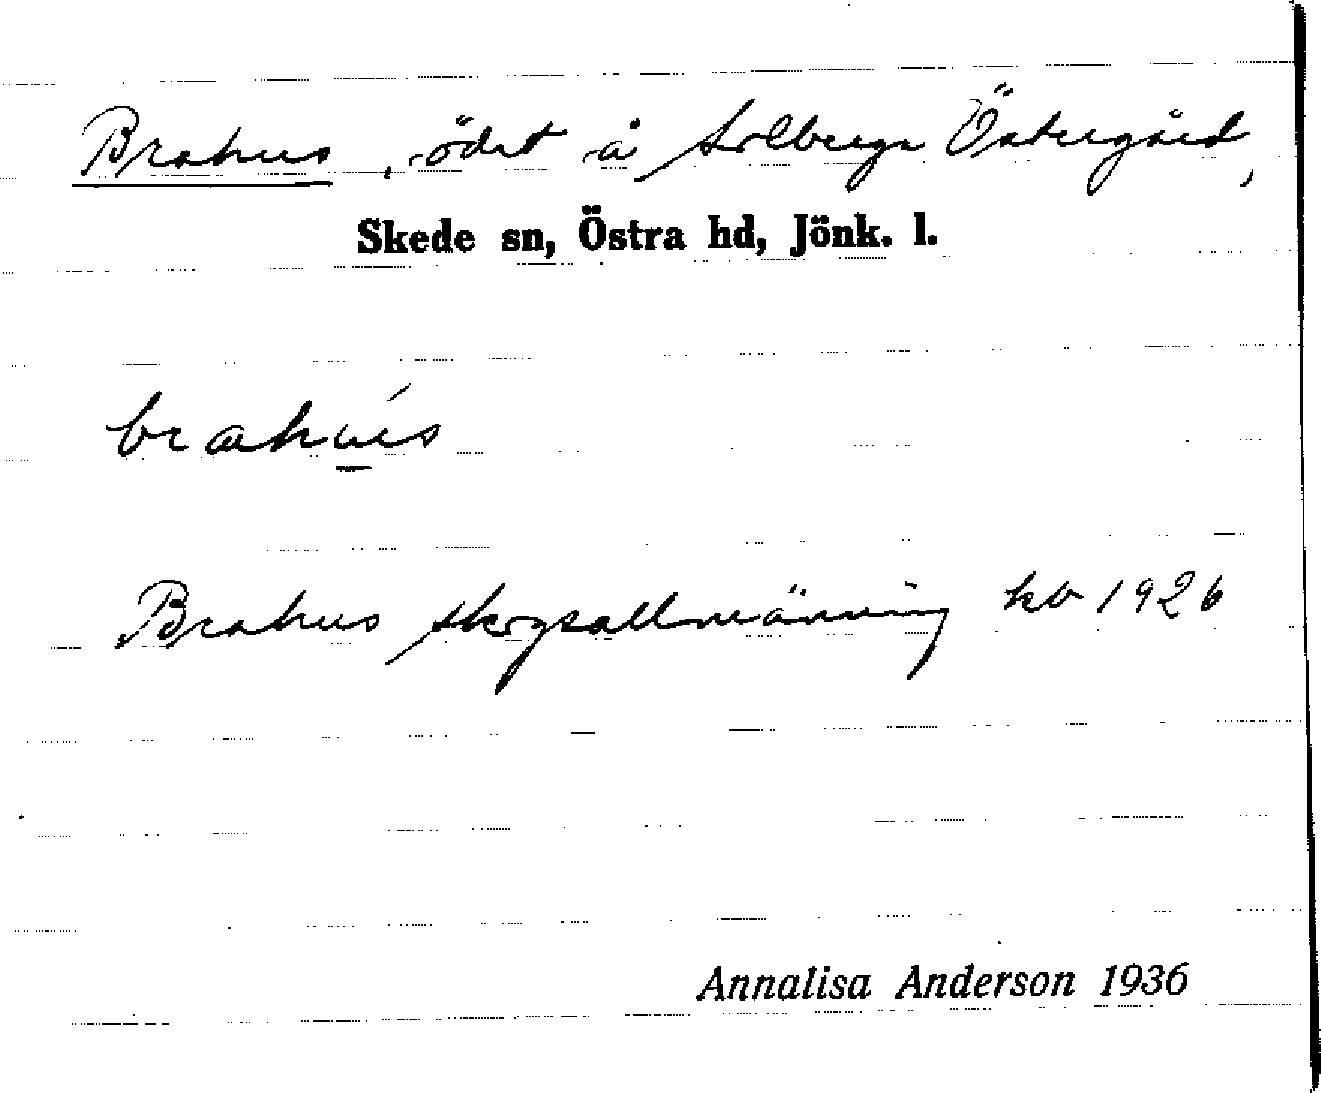 Brahus, ödet å Solberga Östergård,
Skede sn, Östra hd, Jönk. l.
Brahus skogsallmänning kb 1926
Annalisa Anderson 1936